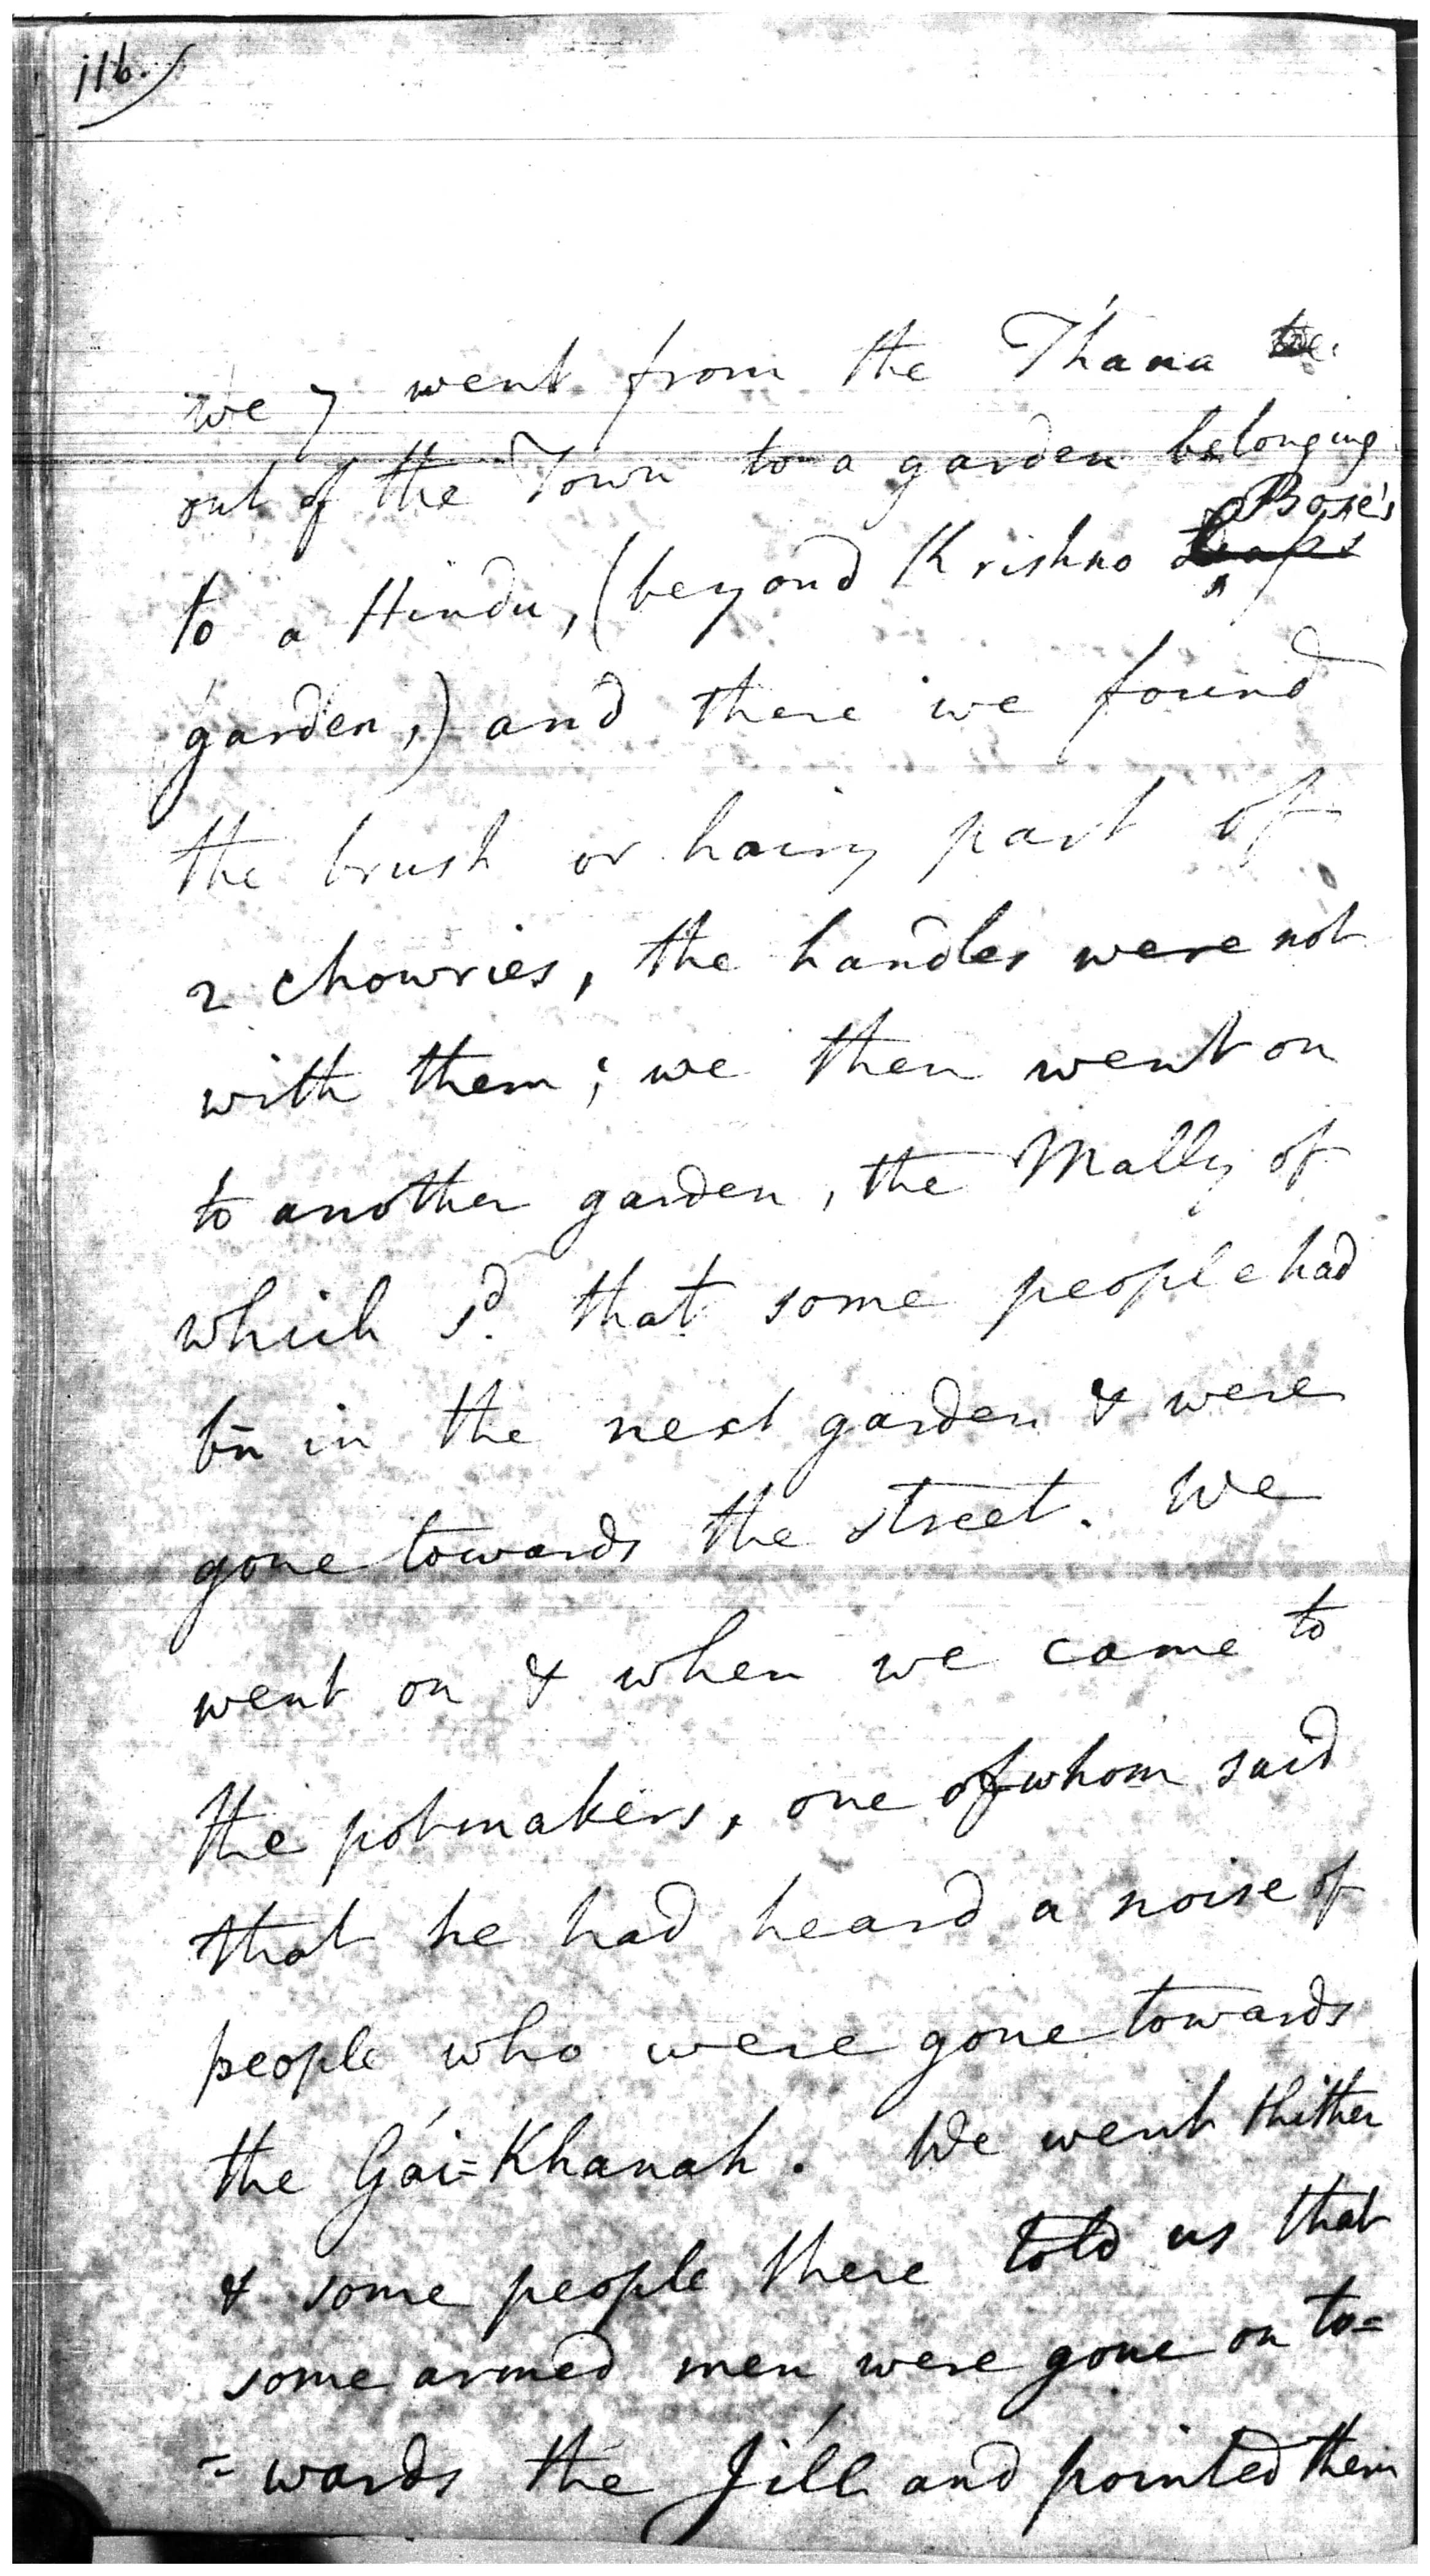 116.
we 7 went from the Thána
out of the Town to a garden belonging
to a Hindu, (beyond Krishno Bose's
garden,) and there we found
the brush or hairy part of
2 chowries, the handles were not
with them; we then went on
to another garden, the Mally of
which sd. that some people had
bn in the next garden & were
gone towards the street. We
went on & when we came to
the potmakers, one of whom said
that he had heard a noise of
people who were gone towards
the Gái=Khanah. We went thither
& some people there told us that
some armed men were gone on to=
=wards the Jíll and pointed them